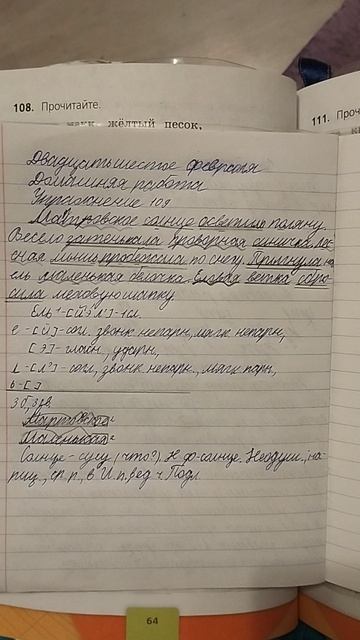 108. Прочитайте.
жёлтый песок,
111. Проч
Двадцатьшестое февраля
Домашняя работа
Упражнение 109
Мартовское солнце осветило поляну.
Весело затенькала проворная синичка. Лес-
ная мышь пробежала по снегу. Прыгнула на
ель маленькая белочка. Еловая ветка сбро-
сила меховую шапку.
Ель - [й'эл']-1сл.
е - [й']-согл., звонк. непарн., мягк. непарн.,
[э]-гласн., ударн.,
л - [л']-согл., звонк. непарн., мягк. парн.,
ь - [ ]
3 б, 3 зв.
Мартовское
Маленькая
Солнце - сущ. (что?). Н.ф-солнце. Неодуш., на-
риц., ср.р., в И.п, в ед.ч. Подл.
64